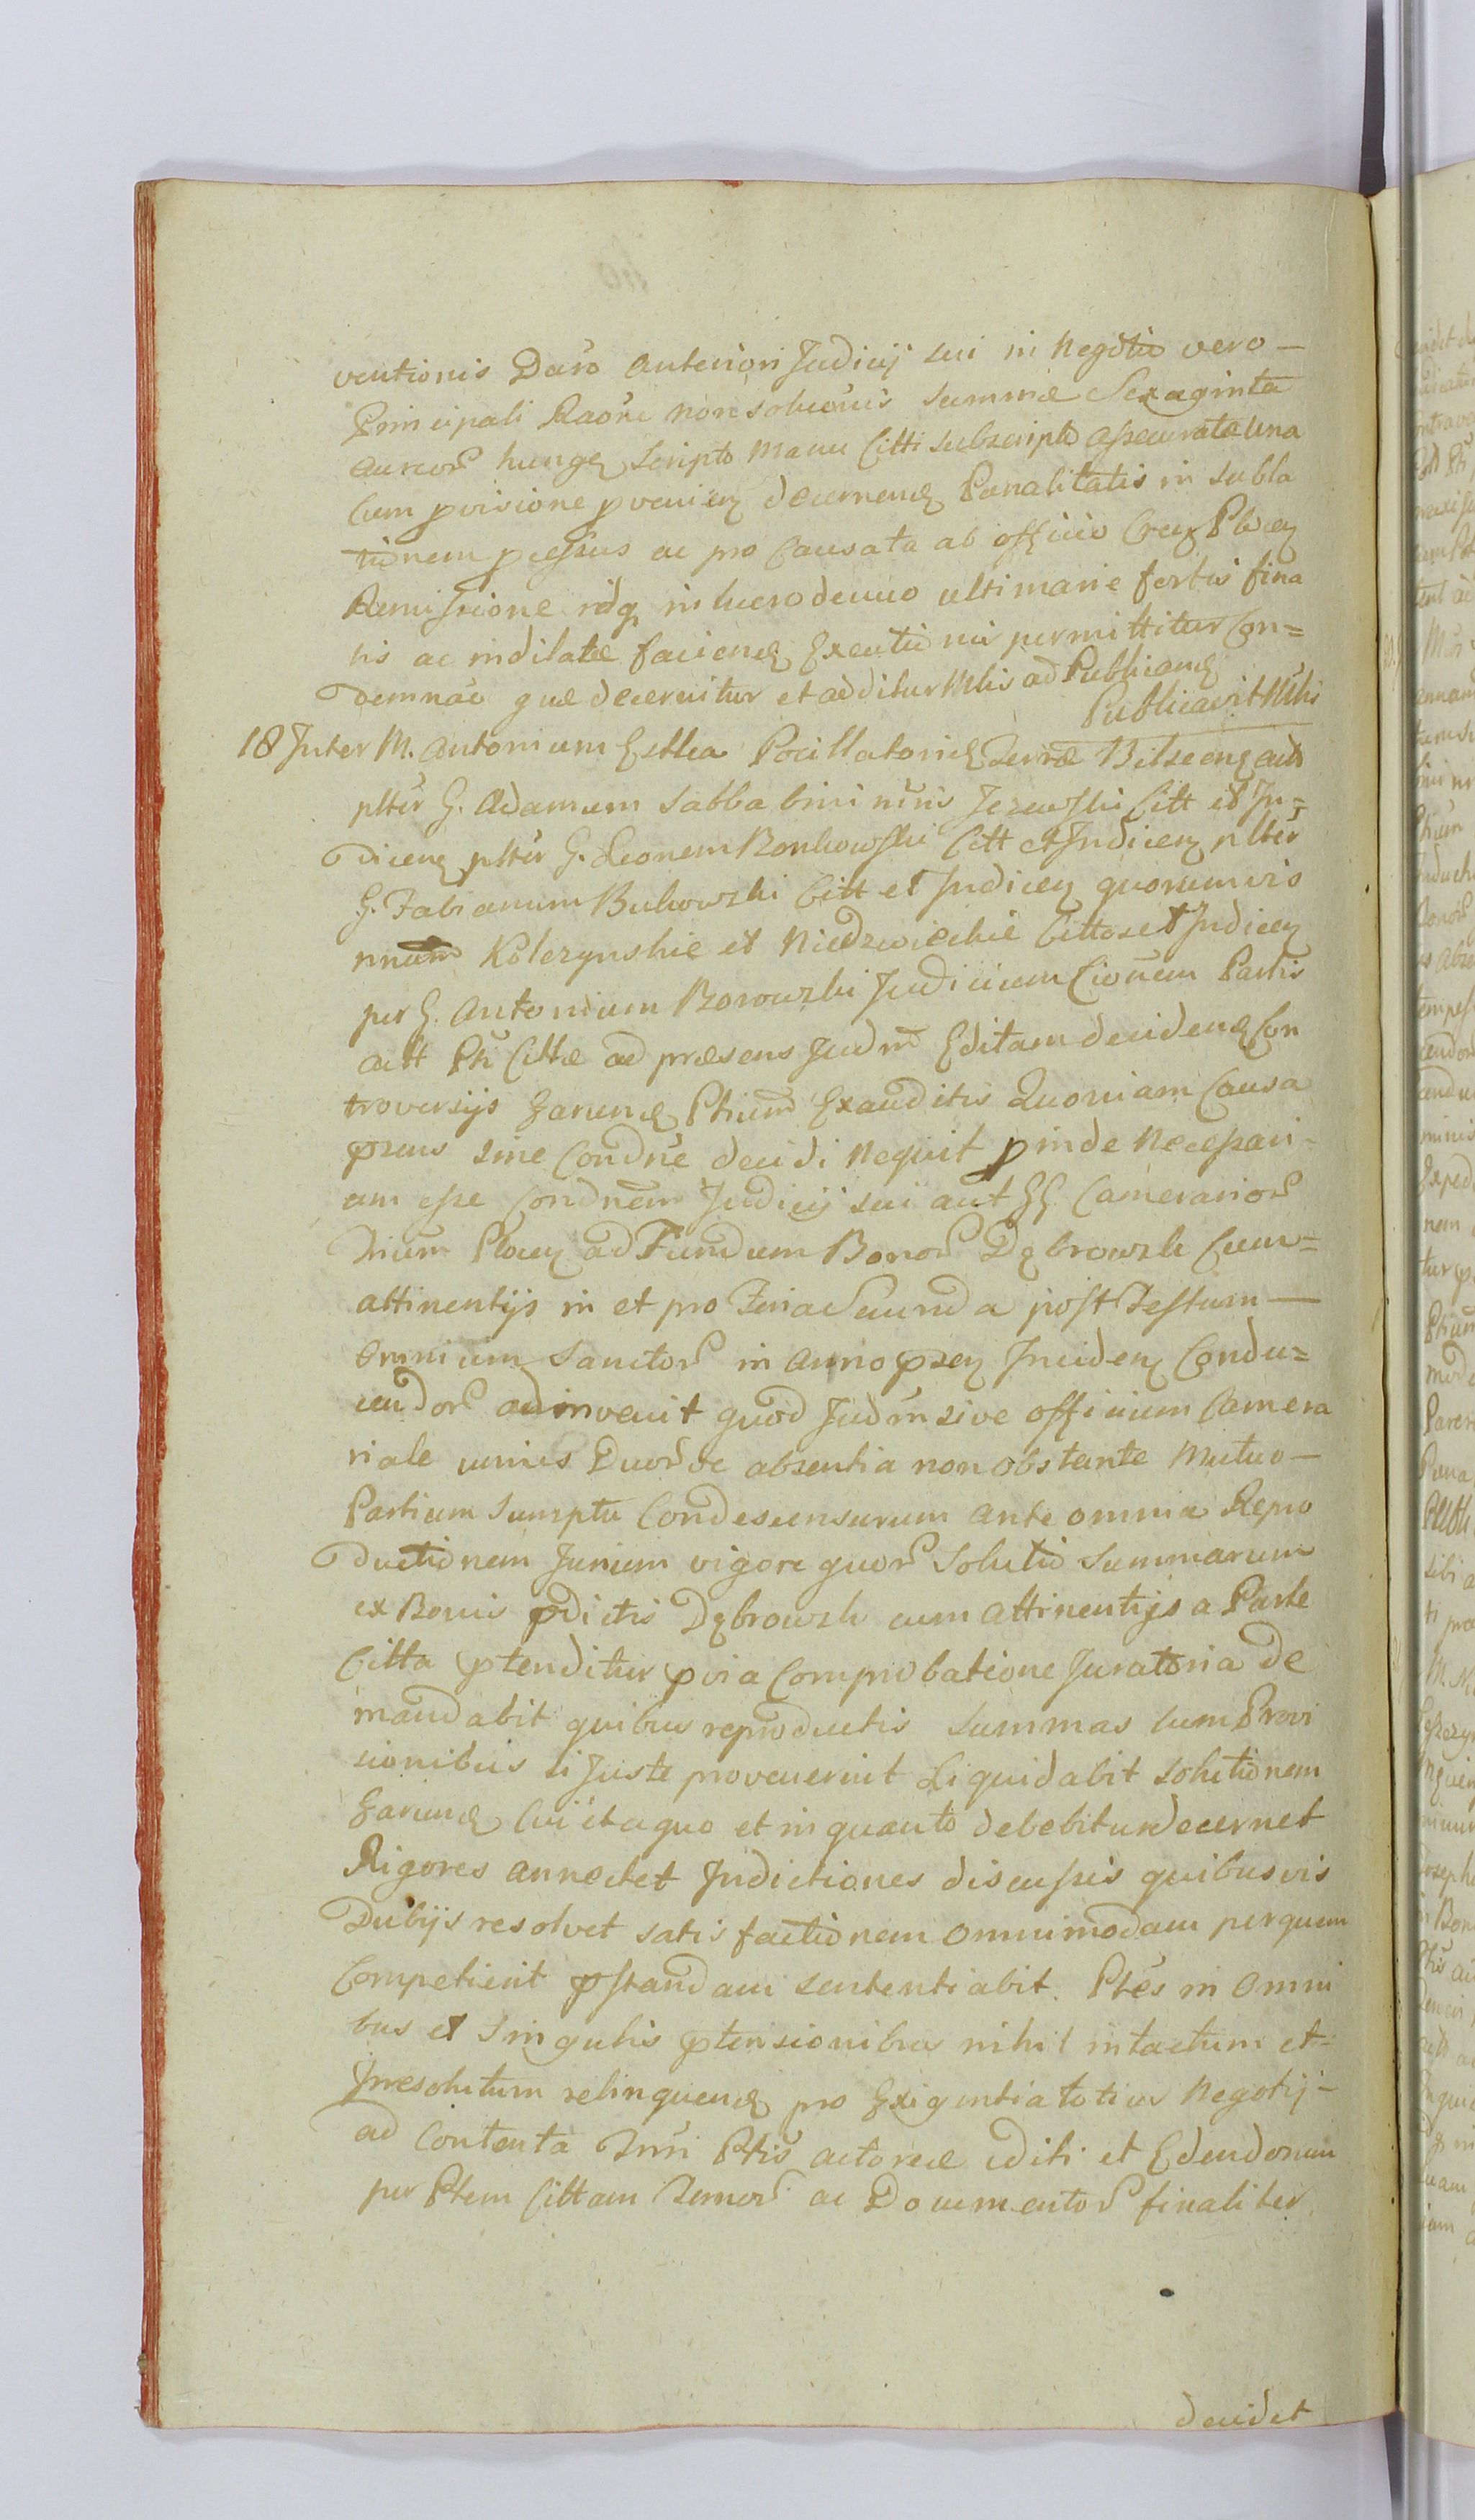 ventionis Daro anteriori Judicij sui in Negotio vero —
Principali Raone non soluonis summæ Sexaginta
aureor hungq scripto Manu Citti subscripto assecurata una
Cum pvisione pvenien decernenq Pænalitatis in subla
tionem pcessus ac pro Causata ab officio Cren Plocen
Remissione idq in lucro denuo ultimarie fortis fina
lis ac indilatæ faciendq Exeutio ni permittitur Con=
demnao quæ decernitur et additur Mlis ad Publicandq
Publicavit Mlis
18 Inter M. Antonium Esthea Pocillatorieq Terræ Bilscenq act
plter G. Adamum Sabba bini nnis Jezewski Citt et In=
dicenq plter G. Leonem Bonkowski Citt et Judicen plter
G. Fabianum Bukowski Citt et Judicen quorumvis
nnum Kolczynskie et Niedzwieckie Cittos et Judicen
per G. Antonium Borowski Judicium Cionem Partis
actt Pti Cittæ ad præsens Judm Editam decidendq Con
troversijs Earundq Ptium Exauditis Quoniam Causa
pzens sine Condne decidi nequit pinde Necessari-
um esse Condnem Judicij sui aut GG Camerarior
Trium Plocen ad Fundum Bonor Dąbrowsk Cum=
attinentijs in et pro Feria Secunda post Festum —
Omnium Sanctor in Anno pzen Inciden Condu=
cendor adinvenit quod Judm sive officium Camera
riale unius Duor ve absentia non obstante Mutuo —
Partium Sumptu Condescensurum ante omnia Repro
ductionem Jurium vigore quor Solutio Summarum
ex Bonis pdictis Dąbrowsk cum attinentijs a Parte
Citta ptenditur pvia Comprobatione Juratoria de
mandabit quibus reproductis Summas cum Provi
sionibus si juste provenerint Liquidabit solutionem
Earundq Cui et a quo et in quanto debebitur decernet
Rigores annectet Indictiones discussis quibusvis
Dubijs resolvet satisfactionem omnimodam per quem
Competierit pstandam sententiabit. Ptes in Omni
bus et Singulis ptensionibus nihil intactum et=
Irresolutum relinquendq pro Exigentia totius Negotij-
ad Contenta Trmi Ptis actoreæ editi et Edendorum
per Ptem Cittam Remor ac Documentor finaliter
decidet